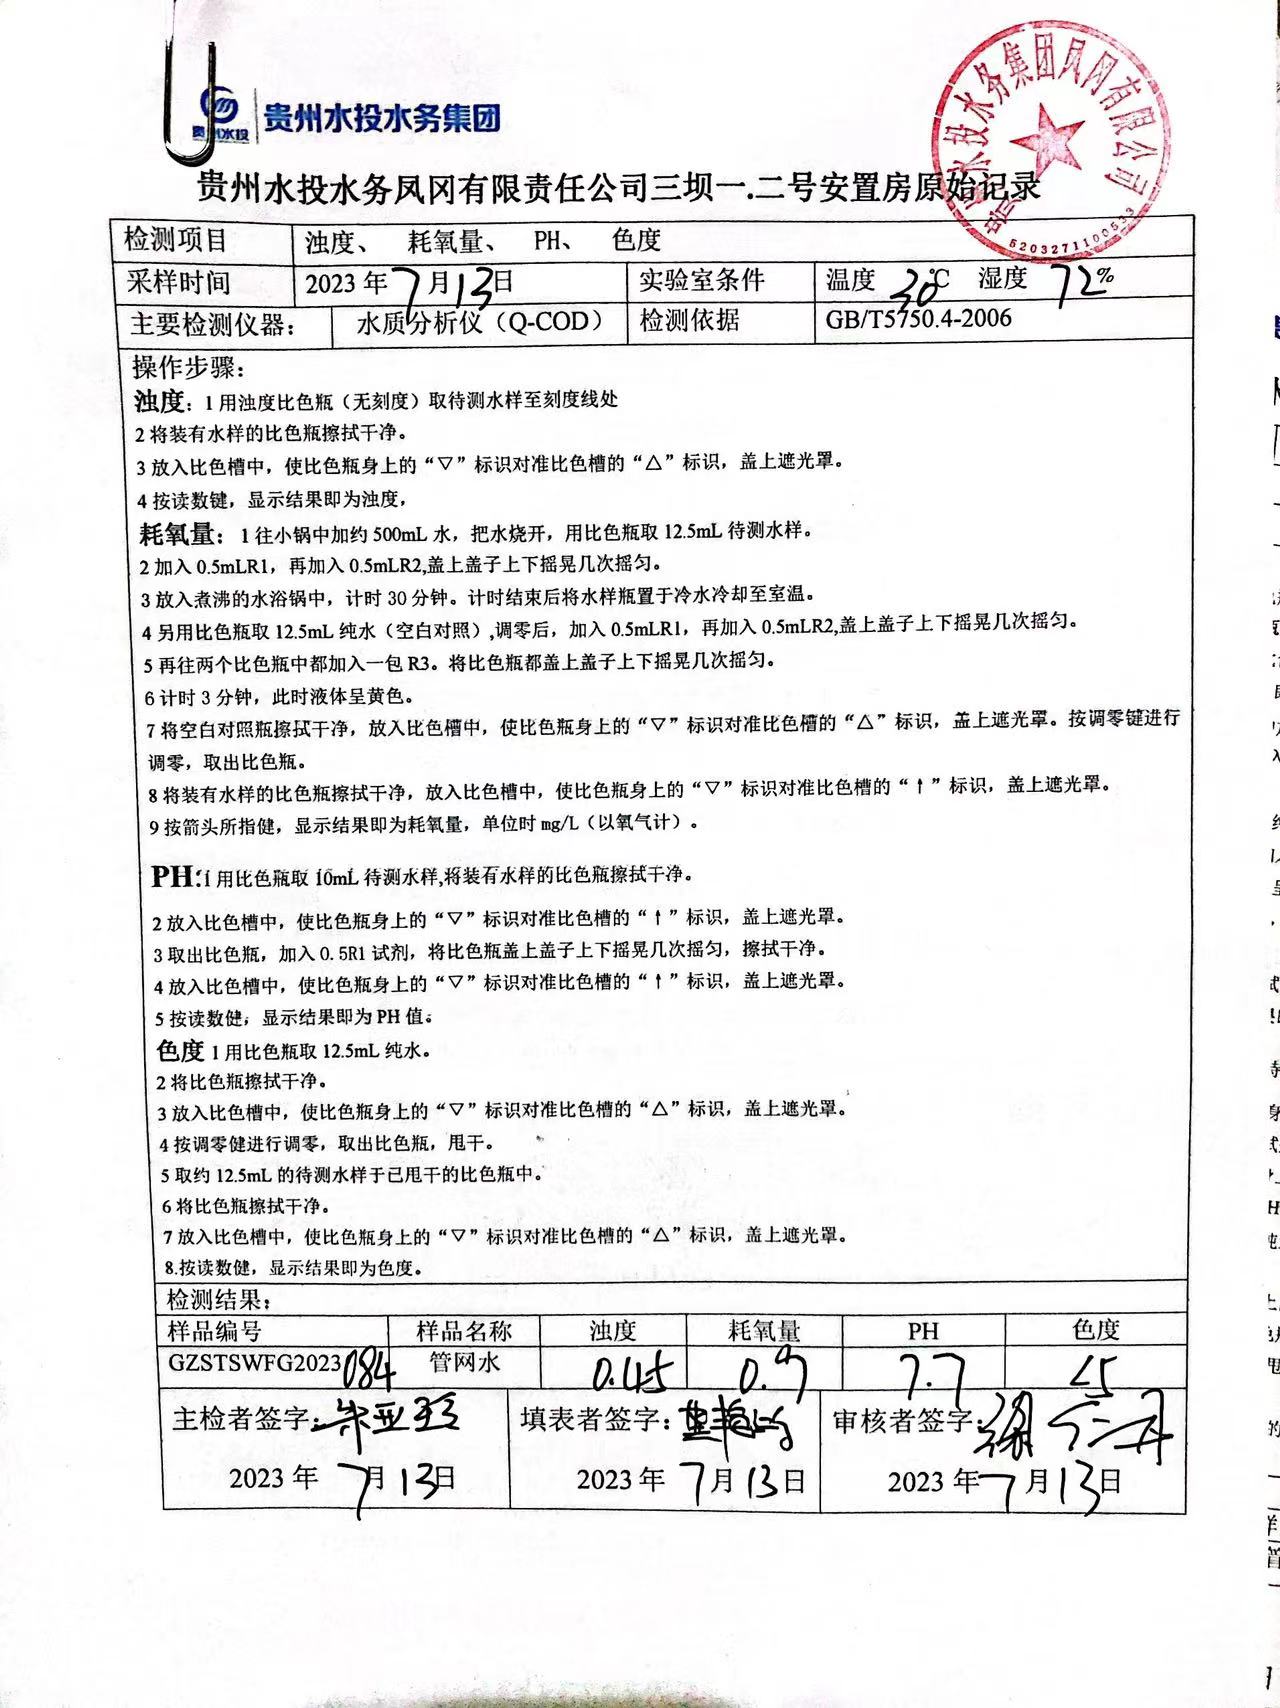 贵州水投 贵州水投水务集团
贵州水投水务凤冈有限责任公司三坝一.二号安置房原始记录
水投水务集团凤冈有限公司
5203271100533
检测项目 浊度、 耗氧量、 PH、 色度
采样时间 2023年7月13日 实验室条件 温度 30℃ 湿度 72%
主要检测仪器： 水质分析仪（Q-COD） 检测依据 GB/T5750.4-2006
操作步骤：
浊度：1 用浊度比色瓶（无刻度）取待测水样至刻度线处
2 将装有水样的比色瓶擦拭干净。
3 放入比色槽中，使比色瓶身上的“▽”标识对准比色槽的“△”标识，盖上遮光罩。
4 按读数键，显示结果即为浊度，
耗氧量：1 往小锅中加约 500mL 水，把水烧开，用比色瓶取 12.5mL 待测水样。
2 加入 0.5mLR1，再加入 0.5mLR2,盖上盖子上下摇晃几次摇匀。
3 放入煮沸的水浴锅中，计时 30 分钟。计时结束后将水样瓶置于冷水冷却至室温。
4 另用比色瓶取 12.5mL 纯水（空白对照）,调零后，加入 0.5mLR1，再加入 0.5mLR2,盖上盖子上下摇晃几次摇匀。
5 再往两个比色瓶中都加入一包 R3。将比色瓶都盖上盖子上下摇晃几次摇匀。
6 计时 3 分钟，此时液体呈黄色。
7 将空白对照瓶擦拭干净，放入比色槽中，使比色瓶身上的“▽”标识对准比色槽的“△”标识，盖上遮光罩。按调零键进行
调零，取出比色瓶。
8 将装有水样的比色瓶擦拭干净，放入比色槽中，使比色瓶身上的“▽”标识对准比色槽的“↑”标识，盖上遮光罩。
9 按箭头所指健，显示结果即为耗氧量，单位时 mg/L（以氧气计）。
PH:1 用比色瓶取 10mL 待测水样,将装有水样的比色瓶擦拭干净。
2 放入比色槽中，使比色瓶身上的“▽”标识对准比色槽的“↑”标识，盖上遮光罩。
3 取出比色瓶，加入 0.5R1 试剂，将比色瓶盖上盖子上下摇晃几次摇匀，擦拭干净。
4 放入比色槽中，使比色瓶身上的“▽”标识对准比色槽的“↑”标识，盖上遮光罩。
5 按读数健，显示结果即为 PH 值。
色度 1 用比色瓶取 12.5mL 纯水。
2 将比色瓶擦拭干净。
3 放入比色槽中，使比色瓶身上的“▽”标识对准比色槽的“△”标识，盖上遮光罩。
4 按调零健进行调零，取出比色瓶，甩干。
5 取约 12.5mL 的待测水样于已甩干的比色瓶中。
6 将比色瓶擦拭干净。
7 放入比色槽中，使比色瓶身上的“▽”标识对准比色槽的“△”标识，盖上遮光罩。
8.按读数健，显示结果即为色度。
检测结果：
样品编号 样品名称 浊度 耗氧量 PH 色度
GZSTSWFG2023084 管网水 0.45 0.9 7.7 <5
主检者签字： 填表者签字： 审核者签字：
2023年7月13日 2023年7月13日 2023年7月13日